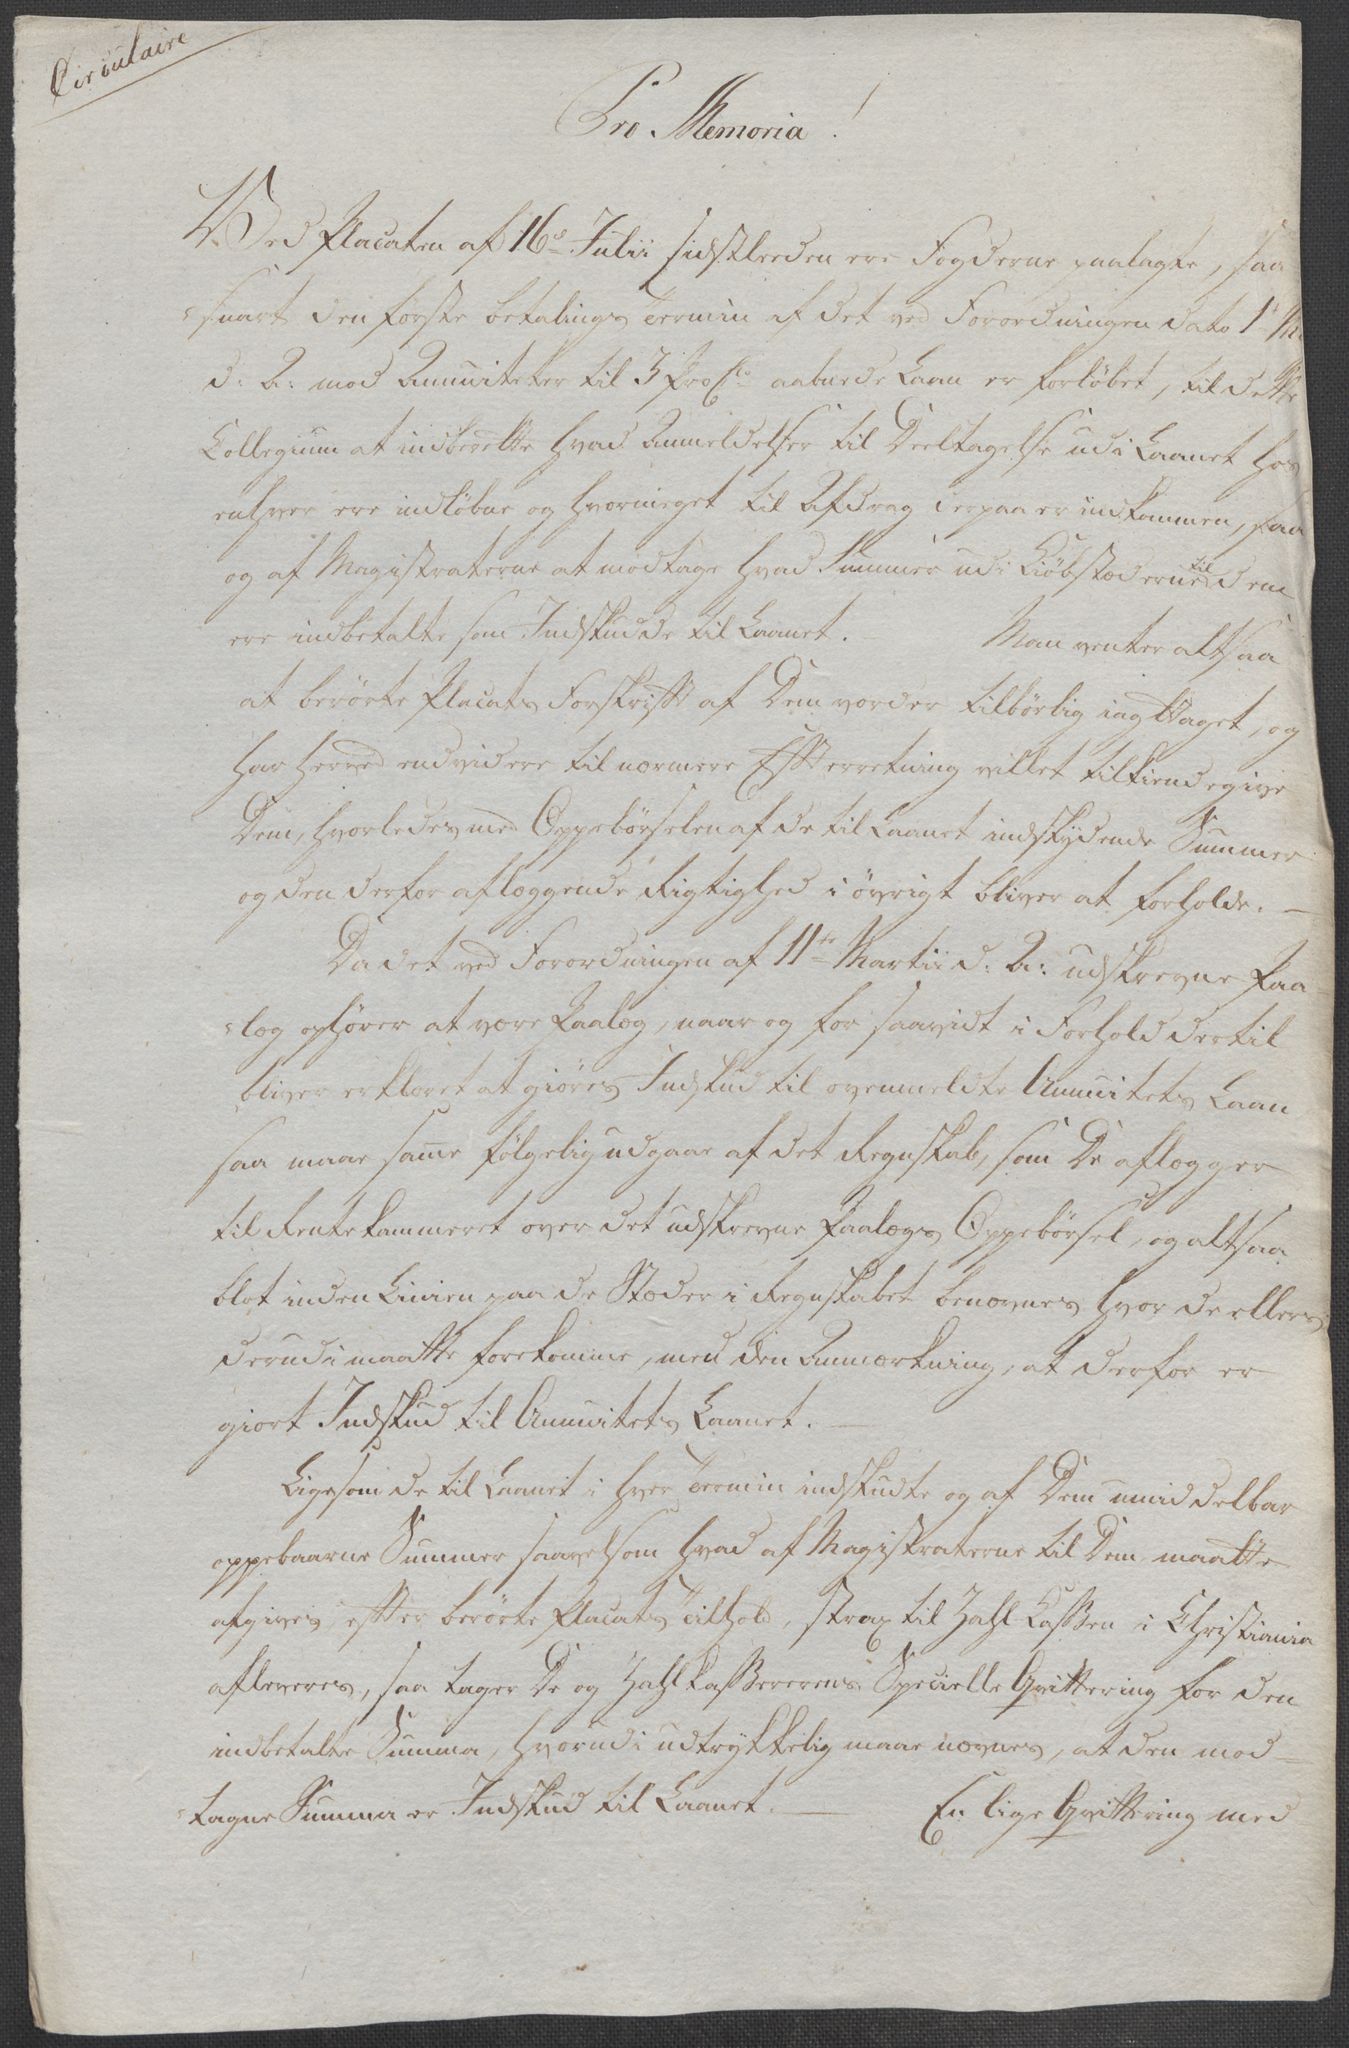 Circulaire
Pro Memoria!
Ved Placaten af 16de Julii sidstleeden ere Fogderne paalagte, saa
snart den første betalings Termin af det ved Forordningen dato
d: A: mod Annuiteter til 3 ProCto aabnede Laan er forløbet, til dette
Collegium at indberette hvad Anmeldelser til Deeltagelse udi Laanet hos
enhver ere indløbne og hvormeget til Afdrag derpaa er indkommen, saa
og af Magistraterne at modtage hvad Summer udi Kiøbstæderne til dem
ere indbetalte som Indskudde til Laanet. Man venter altsaa
at berørte Placats Forskrift af Dem vorder tilbørlig iagttaget, og
har herved endvidere til nærmere Efterretning villet tilkiendegive
Dem, hvorledes med Oppebørselen af de til Laanet indskydende Summer
og den derfor aflæggende Rigtighed i øvrigt bliver at forholde. —
Da det ved Forordningen af 11te Martii d: A: udskrevne Paa-
-læg ophører at være Paalæg, naar og for saavidt i Forhold dertil
bliver erklæret at giøres Indskud til ovenmeldte Annuitets Laan
saa maae samme følgelig udgaae af det Regnskab, som De aflægger
til Rentekammeret over det udskrevne Paalægs Oppebørsel, og altsaa
blot inden Linien paa de Stæder i Regnskabet benævnes hvor de ellers
derudi maatte forekomme, med den Anmærkning, at derfor er
giort Indskud til Annuitets Laanet. —
Ligesom de til Laanet i hver Termin indskudte og af Dem umiddelbar
oppebaarne Summer saavelsom hvad af Magistraterne til Dem maatte
afgives, efter berørte Placats Tilhold, strax til Zahl Cassen i Christiania
afleveres, saa tager De og Zahlkassererens Specielle Qvittering for den
indbetalte Summa, hvorudi udtrykkelig maae nævnes, at den mod-
-tagne Summa er Indskud til Laanet. — En lige Qvittering med